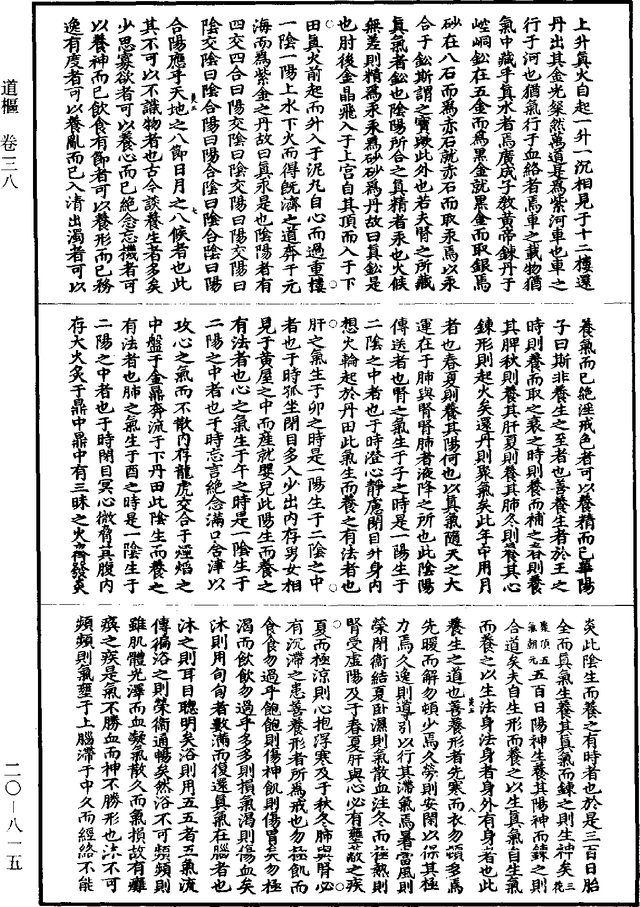 道樞 卷三八
二〇—八一五
上升真火自起一升一沉相見于十二樓還
丹出其金光粲然萬道是爲紫河車也車之
行于河也猶氣行于血絡者焉車之載物猶
氣中藏乎真水者焉廣成子敎黃帝鍊丹于
崆峒鈆在五金而爲黑金就黑金而取銀焉
砂在八石而爲赤石就赤石而取汞焉以汞
合于鈆斯謂之寶歟此外也若夫腎之所藏
真氣者鈆也陰陽所合之真精者汞也火候
無差則精爲汞汞爲砂砂爲丹故曰真鈆是
也肘後金晶飛入于上宮自其頂而入于下
田真火前起而升入于泥丸自心而過重樓
一陰一陽上水下火而得旣濟之道奔于元
海而爲紫金之丹故曰真汞是也陰陽者有
四交四合曰陽交陰曰陰交陽曰陽交陽曰
陰交陰曰陰合陽曰陽合陰曰陰合陰曰陽
合陽應乎天地之八節日月之八候者也此
其不可以不識物者也古今談養生者多矣
少思寡欲者可以養心而已絶念忘機者可
以養神而已飲食有節者可以養形而已務
逸有度者可以養亂而已入清出濁者可以
養氣而已絶淫戒色者可以養精而已華陽
子曰斯非養生之至者也善養生者於王之
時則養而取之衰之時則養而補之春則養
其脾秋則養其肝夏則養其肺冬則養其心
鍊形則起火矣還丹則聚氣矣此年中用月
者也春夏則養其陽何也以真氣隨天之大
運在于肺與腎腎肺者液降之所也此陰陽
傳送者也腎之氣生于子之時是一陽生于
二陰之中者也于時澄心靜慮閉目升身內
想火輪起於丹田此氣生而養之有法者也
肝之氣生于卯之時是一陽生于二陰之中
者也于時孤坐閉目多入少出內存男女相
見于黃屋之中而産就嬰兒此陽生而養之
有法者也心之氣生于午之時是一陰生于
二陽之中者也于時忘言絶念滿口含津以
攻心之氣而不散內存龍虎交合于煙焰之
中盤于金鼎奔流于下丹田此陰生而養之
有法者也肺之氣生于酉之時是一陰生于
二陽之中者也于時閉目冥心微脅其腹內
存大火炙于鼎中鼎中有三昧之火齊發炎
炎此陰生而養之有時者也於是三百日胎
全而真氣生養其真氣而鍊之則生神矣三花
聚頂五氣朝元五百日陽神生養其陽神而鍊之則
合道矣夫自生形而養之以生真氣自生氣
而養之以生法身法身者身外有身者也此
養生之道也善養形者先寒而衣勿頓多焉
先暖而解勿頓少焉久勞則安閑以保其極
力焉久逸則導引以行其滯氣焉暑當風則
榮閉衛結夏卧濕則氣散血注冬而極熱則
腎受虛陽及于春夏肝與心必有壅蔽之疾
夏而極涼則心抱浮寒及于秋冬肺與腎必
有沉滯之患善養形者所爲戒也勿極飢而
食食勿過乎飽飽則傷神飢則傷胃矣勿極
渴而飲飲勿過乎多多則損氣渴則傷血矣
沐則用旬旬者數滿而復還真氣在腦者也
沐之則耳目聰明矣浴則用五五者五氣流
傳徧浴之則榮衛通暢矣然浴不可頻頻則
雖肌體光澤而血凝氣散久而氣損故有癱
瘓之疾是氣不勝血而神不勝形也沐不可
頻頻則氣壅于上腦滯于中久而經絡不能